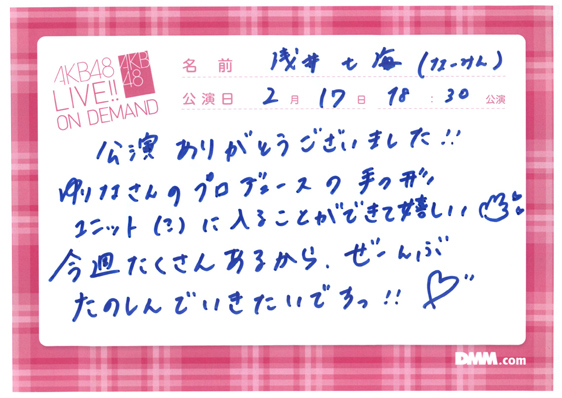 AKB48
LIVE!!
ON DEMAND
AKB
48
名前 浅井七海(なーみん)
公演日 2月17日 18:30公演
公演 ありがとうございました!!
ゆりなさんのプロデュースの手つなぎ
ユニット(?)に入ることができて嬉しい
今週たくさんあるから、ぜーんぶ
たのしんでいきたいですっ!!
DMM.com